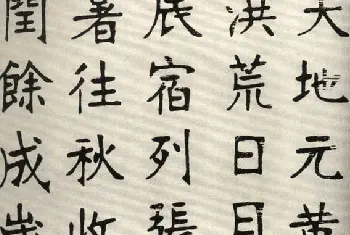 天地元黄
洪荒日月
辰宿列張
暑往秋收
閏餘成歲